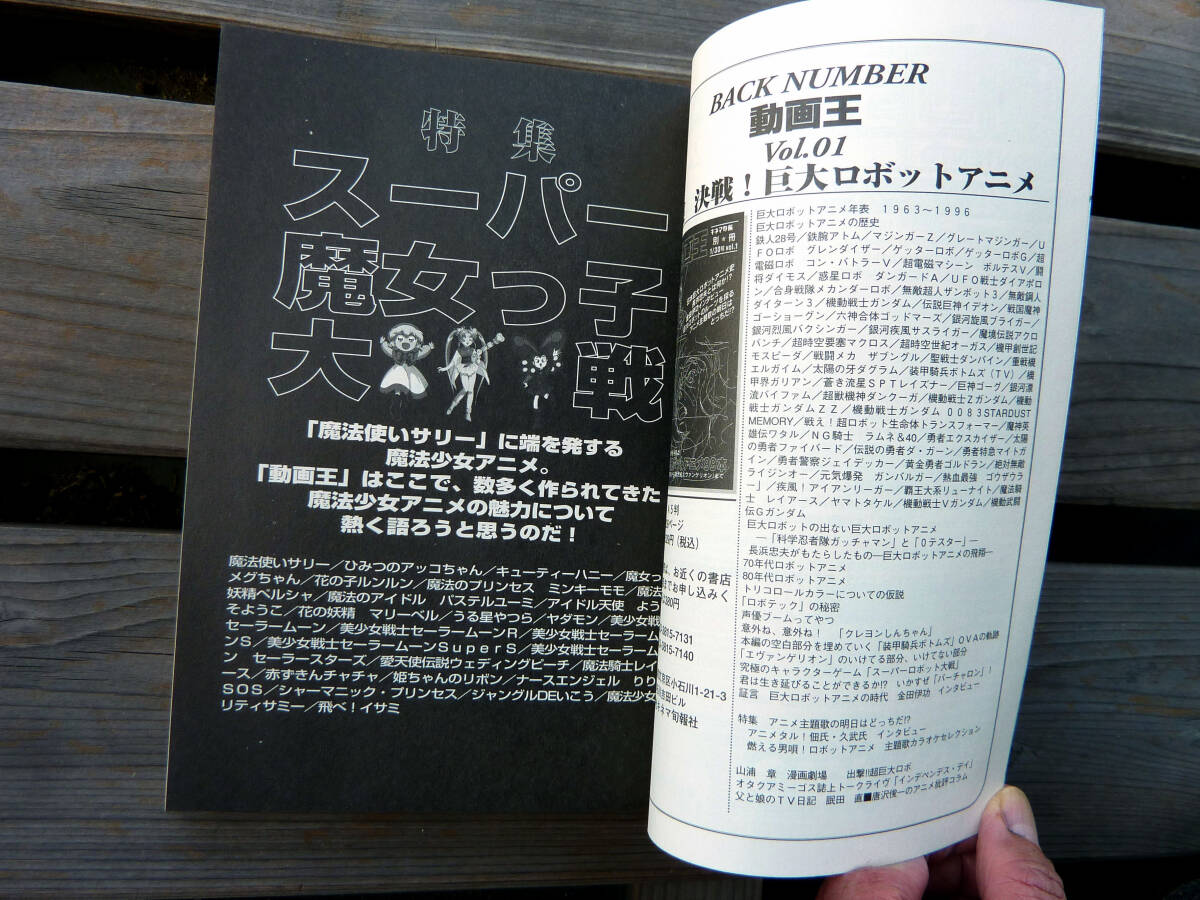 特集
スーパー
魔女っ子
大戦
「魔法使いサリー」に端を発する
魔法少女アニメ。
「動画王」はここで、数多く作られてきた
魔法少女アニメの魅力について
熱く語ろうと思うのだ！
魔法使いサリー／ひみつのアッコちゃん／キューティーハニー／魔女っ
メグちゃん／花の子ルンルン／魔法のプリンセス ミンキーモモ／魔法
妖精ペルシャ／魔法のアイドル パステルユーミ／アイドル天使 よう
そようこ／花の妖精 マリーベル／うる星やつら／ヤダモン／美少女戦
セーラームーン／美少女戦士セーラームーンR／美少女戦士セーラーム
ーンS／美少女戦士セーラームーンSuperS／美少女戦士セーラームー
ン セーラースターズ／愛天使伝説ウェディングピーチ／魔法騎士レイ
ース／赤ずきんチャチャ／姫ちゃんのリボン／ナースエンジェル りり
SOS／シャーマニック・プリンセス／ジャングルDEいこう／魔法少女
リティサミー／飛べ！イサミ
BACK NUMBER
動画王
Vol.01
決戦！巨大ロボットアニメ
巨大ロボットアニメ年表 1963～1996
巨大ロボットアニメの歴史
鉄人28号／鉄腕アトム／マジンガーZ／グレートマジンガー／U
FOロボ グレンダイザー／ゲッターロボ／ゲッターロボG／超
電磁ロボ コン・バトラーV／超電磁マシーン ボルテスV／闘
将ダイモス／惑星ロボ ダンガードA／UFO戦士ダイアポロ
ン／合身戦隊メカンダーロボ／無敵超人ザンボット3／無敵鋼人
ダイターン3／機動戦士ガンダム／伝説巨神イデオン／戦国魔神
ゴーショーグン／六神合体ゴッドマーズ／銀河旋風ブライガー／
銀河烈風バクシンガー／銀河疾風サスライガー／魔境伝説アクロ
バンチ／超時空要塞マクロス／超時空世紀オーガス／機甲創世記
モスピーダ／戦闘メカ ザブングル／聖戦士ダンバイン／重戦機
エルガイム／太陽の牙ダグラム／装甲騎兵ボトムズ（TV）／機
甲界ガリアン／蒼き流星SPTレイズナー／巨神ゴーグ／銀河漂
流バイファム／超獣機神ダンクーガ／機動戦士Zガンダム／機動
戦士ガンダムZZ／機動戦士ガンダム 0083STARDUST
MEMORY／戦え！超ロボット生命体トランスフォーマー／魔神英
雄伝ワタル／NG騎士 ラムネ&40／勇者エクスカイザー／太陽
の勇者ファイバード／伝説の勇者ダ・ガーン／勇者特急マイトガ
イン／勇者警察ジェイデッカー／黄金勇者ゴルドラン／絶対無敵
ライジンオー／元気爆発 ガンバルガー／熱血最強 ゴウザウラ
ー」／疾風！アイアンリーガー／覇王大系リューナイト／魔法騎
士 レイアース／ヤマトタケル／機動戦士Vガンダム／機動武闘
伝Gガンダム
巨大ロボットの出ない巨大ロボットアニメ
―「科学忍者隊ガッチャマン」と「0テスター」―
長浜忠夫がもたらしたもの―巨大ロボットアニメの飛翔―
70年代ロボットアニメ
80年代ロボットアニメ
トリコロールカラーについての仮説
「ロボテック」の秘密
声優ブームってやつ
意外ね、意外ね！ 「クレヨンしんちゃん」
本編の空白部分を埋めていく「装甲騎兵ボトムズ」OVAの軌跡
「エヴァンゲリオン」のいけてる部分、いけてない部分
究極のキャラクターゲーム「スーパーロボット大戦」
君は生き延びることができるか!? いかすぜ「バーチャロン」！
証言 巨大ロボットアニメの時代 金田伊功 インタビュー
特集 アニメ主題歌の明日はどっちだ!?
アニメタル！佃氏・久武氏 インタビュー
燃える男唄！ロボットアニメ 主題歌カラオケセレクション
山浦 章 漫画劇場 出撃!!超巨大ロボ
オタクアミーゴス誌上トークライヴ「インデペンデス・デイ」
父と娘のTV日記 眠田 直■唐沢俊一のアニメ批評コラム
5判
ページ
円（税込）
、お近くの書店
でお申し込みく
380円
815-7131
815-7140
区小石川1-21-3
田ビル
ネマ旬報社